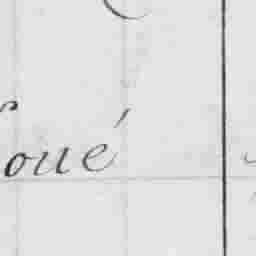 oué